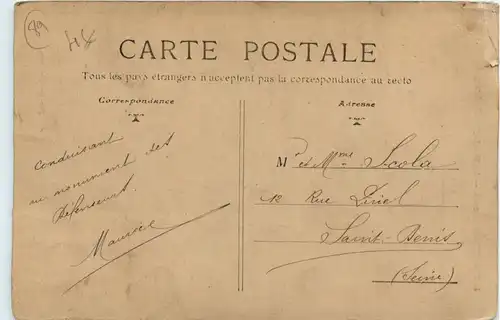 89
48
CARTE POSTALE
Tous les pays étrangers n'acceptent pas la correspondance au recto
Correspondance
Adresse
Conduisant
au monument des
Défenseurs.
Maurice
M et Mme Scola
12 Rue Pinel
Saint-Denis
(Seine)